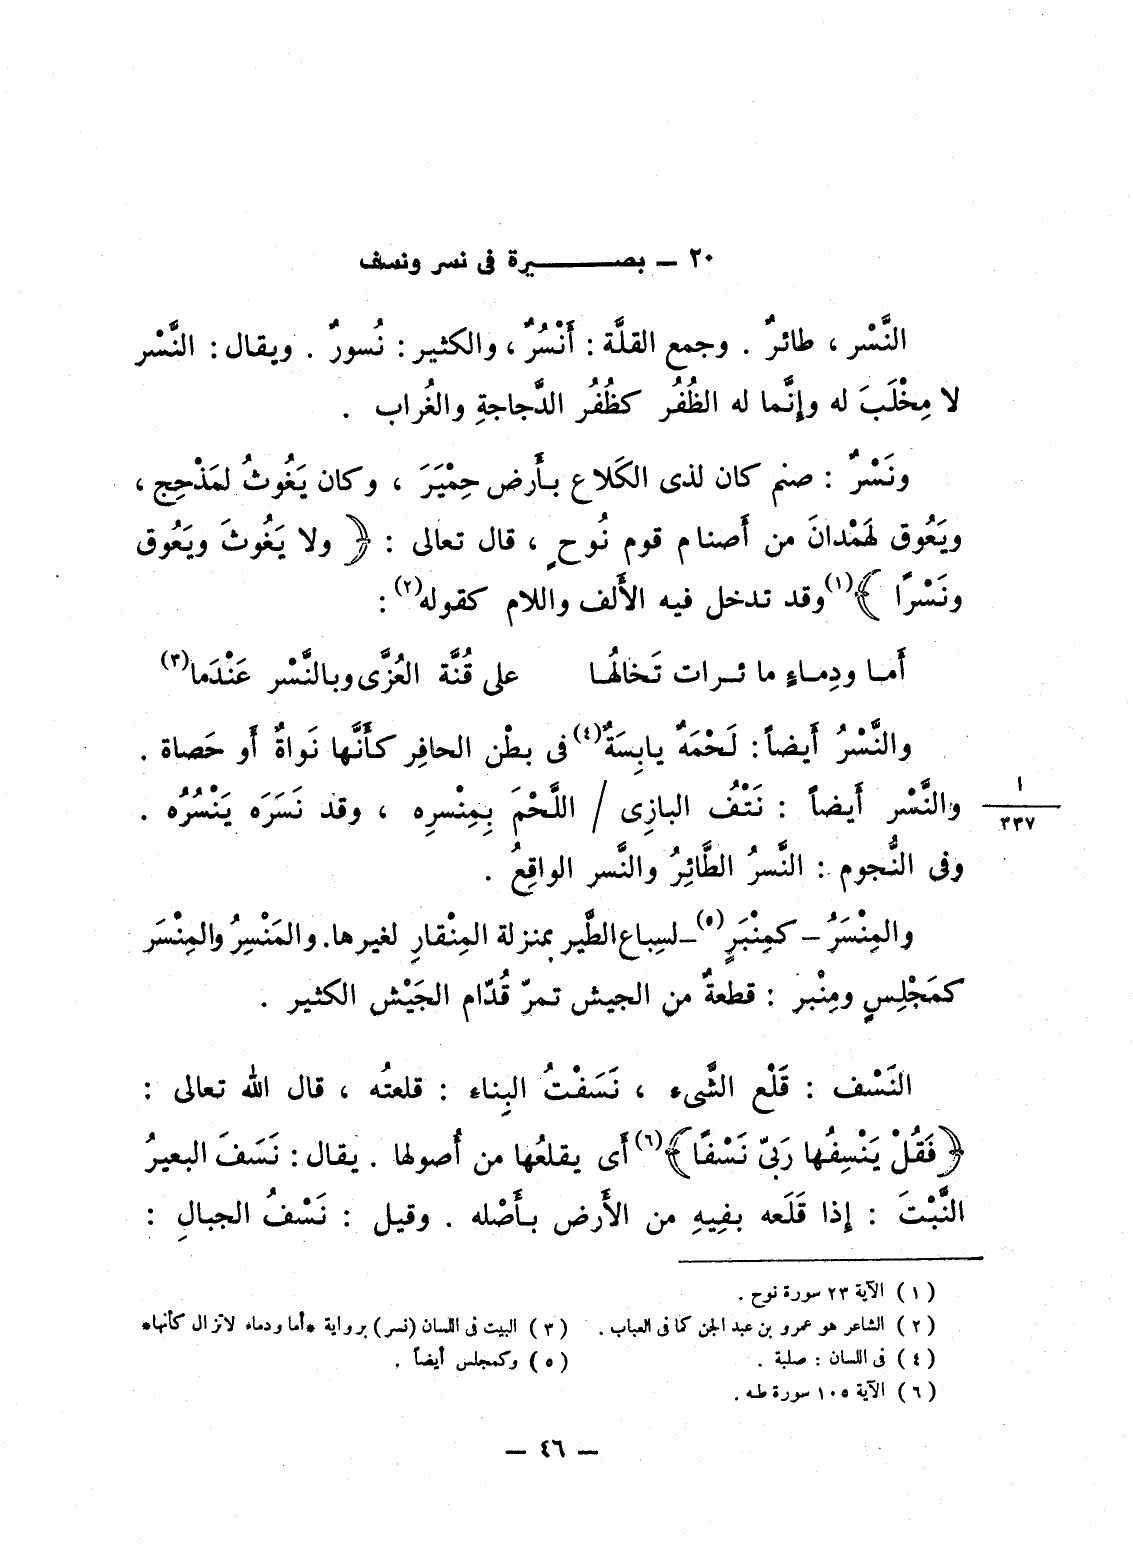 ٢٠ ــ بصـــــــيرة فى نسر ونسف
النَّسْر ، طائرٌ . وجمع القلَّة : أَنْسُرٌ ، والكثير : نُسورٌ . ويقال : النَّسْر
لا مِخْلَبَ له وإِنَّما له الظُفُر كظُفُر الدَّجاجةِ والغُراب .
ونَسْرٌ : صنم كان لذى الكَلاع بأَرض حِمْيَرَ ، وكان يَغُوثُ لمَذْحِج ،
ويَعُوق لهَمْدانَ من أَصنام قوم نُوحٍ ، قال تعالى : ﴿ ولا يَغُوثَ ويَعُوق
ونَسْرًا ﴾(١) وقد تدخل فيه الأَلف واللام كقوله(٢) :
أَمـا ودِمـاءٍ مائـرات تَخالُهـا على قُنَّة العُزَّى وبالنَّسْر عَنْدَما(٣)
والنَّسْرُ أَيضاً : لَحْمَهٌ يابِسَةٌ(٤) فى بطْن الحافِر كأَنَّها نَواةٌ أَو حَصاة .
والنَّسْر أَيضاً : نَتْفُ البازِى / اللَّحْمَ بِمِنْسرِه ، وقد نَسَرَه يَنْسُرُه .
١
٣٣٧
وفى النُّجوم : النَّسرُ الطَّائِرُ والنَّسر الواقِعُ .
والمِنْسَرُ ــ كمِنْبَرٍ(٥) ــ لسِباع الطَّير بمنزلة المِنْقارِ لغيرها. والمَنْسِرُ والمِنْسَر
كمَجْلِسٍ ومِنْبر : قطعةٌ من الجيش تمرّ قُدّام الجَيْش الكثير .
النَسْف : قَلْع الشَّىء ، نَسَفْتُ البِناء : قلعتُه ، قال الله تعالى :
﴿ فَقُلْ يَنْسِفُها رَبِىّ نَسْفًا ﴾(٦) أَى يقلعُها من أُصولها . يقال : نَسَفَ البعيرُ
النَّبْتَ : إِذا قَلَعه بفِيهِ من الأَرض بأَصْله . وقيل : نَسْفُ الجبالِ :
(١) الآية ٢٣ سورة نوح .
(٢) الشاعر هو عمرو بن عبد الجن كما فى العباب . (٣) البيت فى اللسان (نسر) برواية *أما ودماء لاتزال كأنها*
(٤) فى اللسان : صلبة . (٥) وكمجلس أيضاً .
(٦) الآية ١٠٥ سورة طه .
ــ ٤٦ ــ